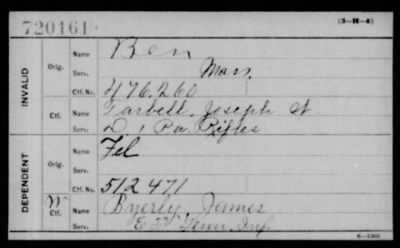 720161
(3-H-4)
INVALID
Orig.
Name Ben
Serv. Mar.
Ctf. No. 476,260
Ctf. Name Tarbell, Joseph A
Serv. D. 1 Pa. Rifles
DEPENDENT
Orig.
Name Fel
Serv.
Ctf. No. 512471
W
Ctf. Name Byerly, James
Serv. E Tenn. Inf.